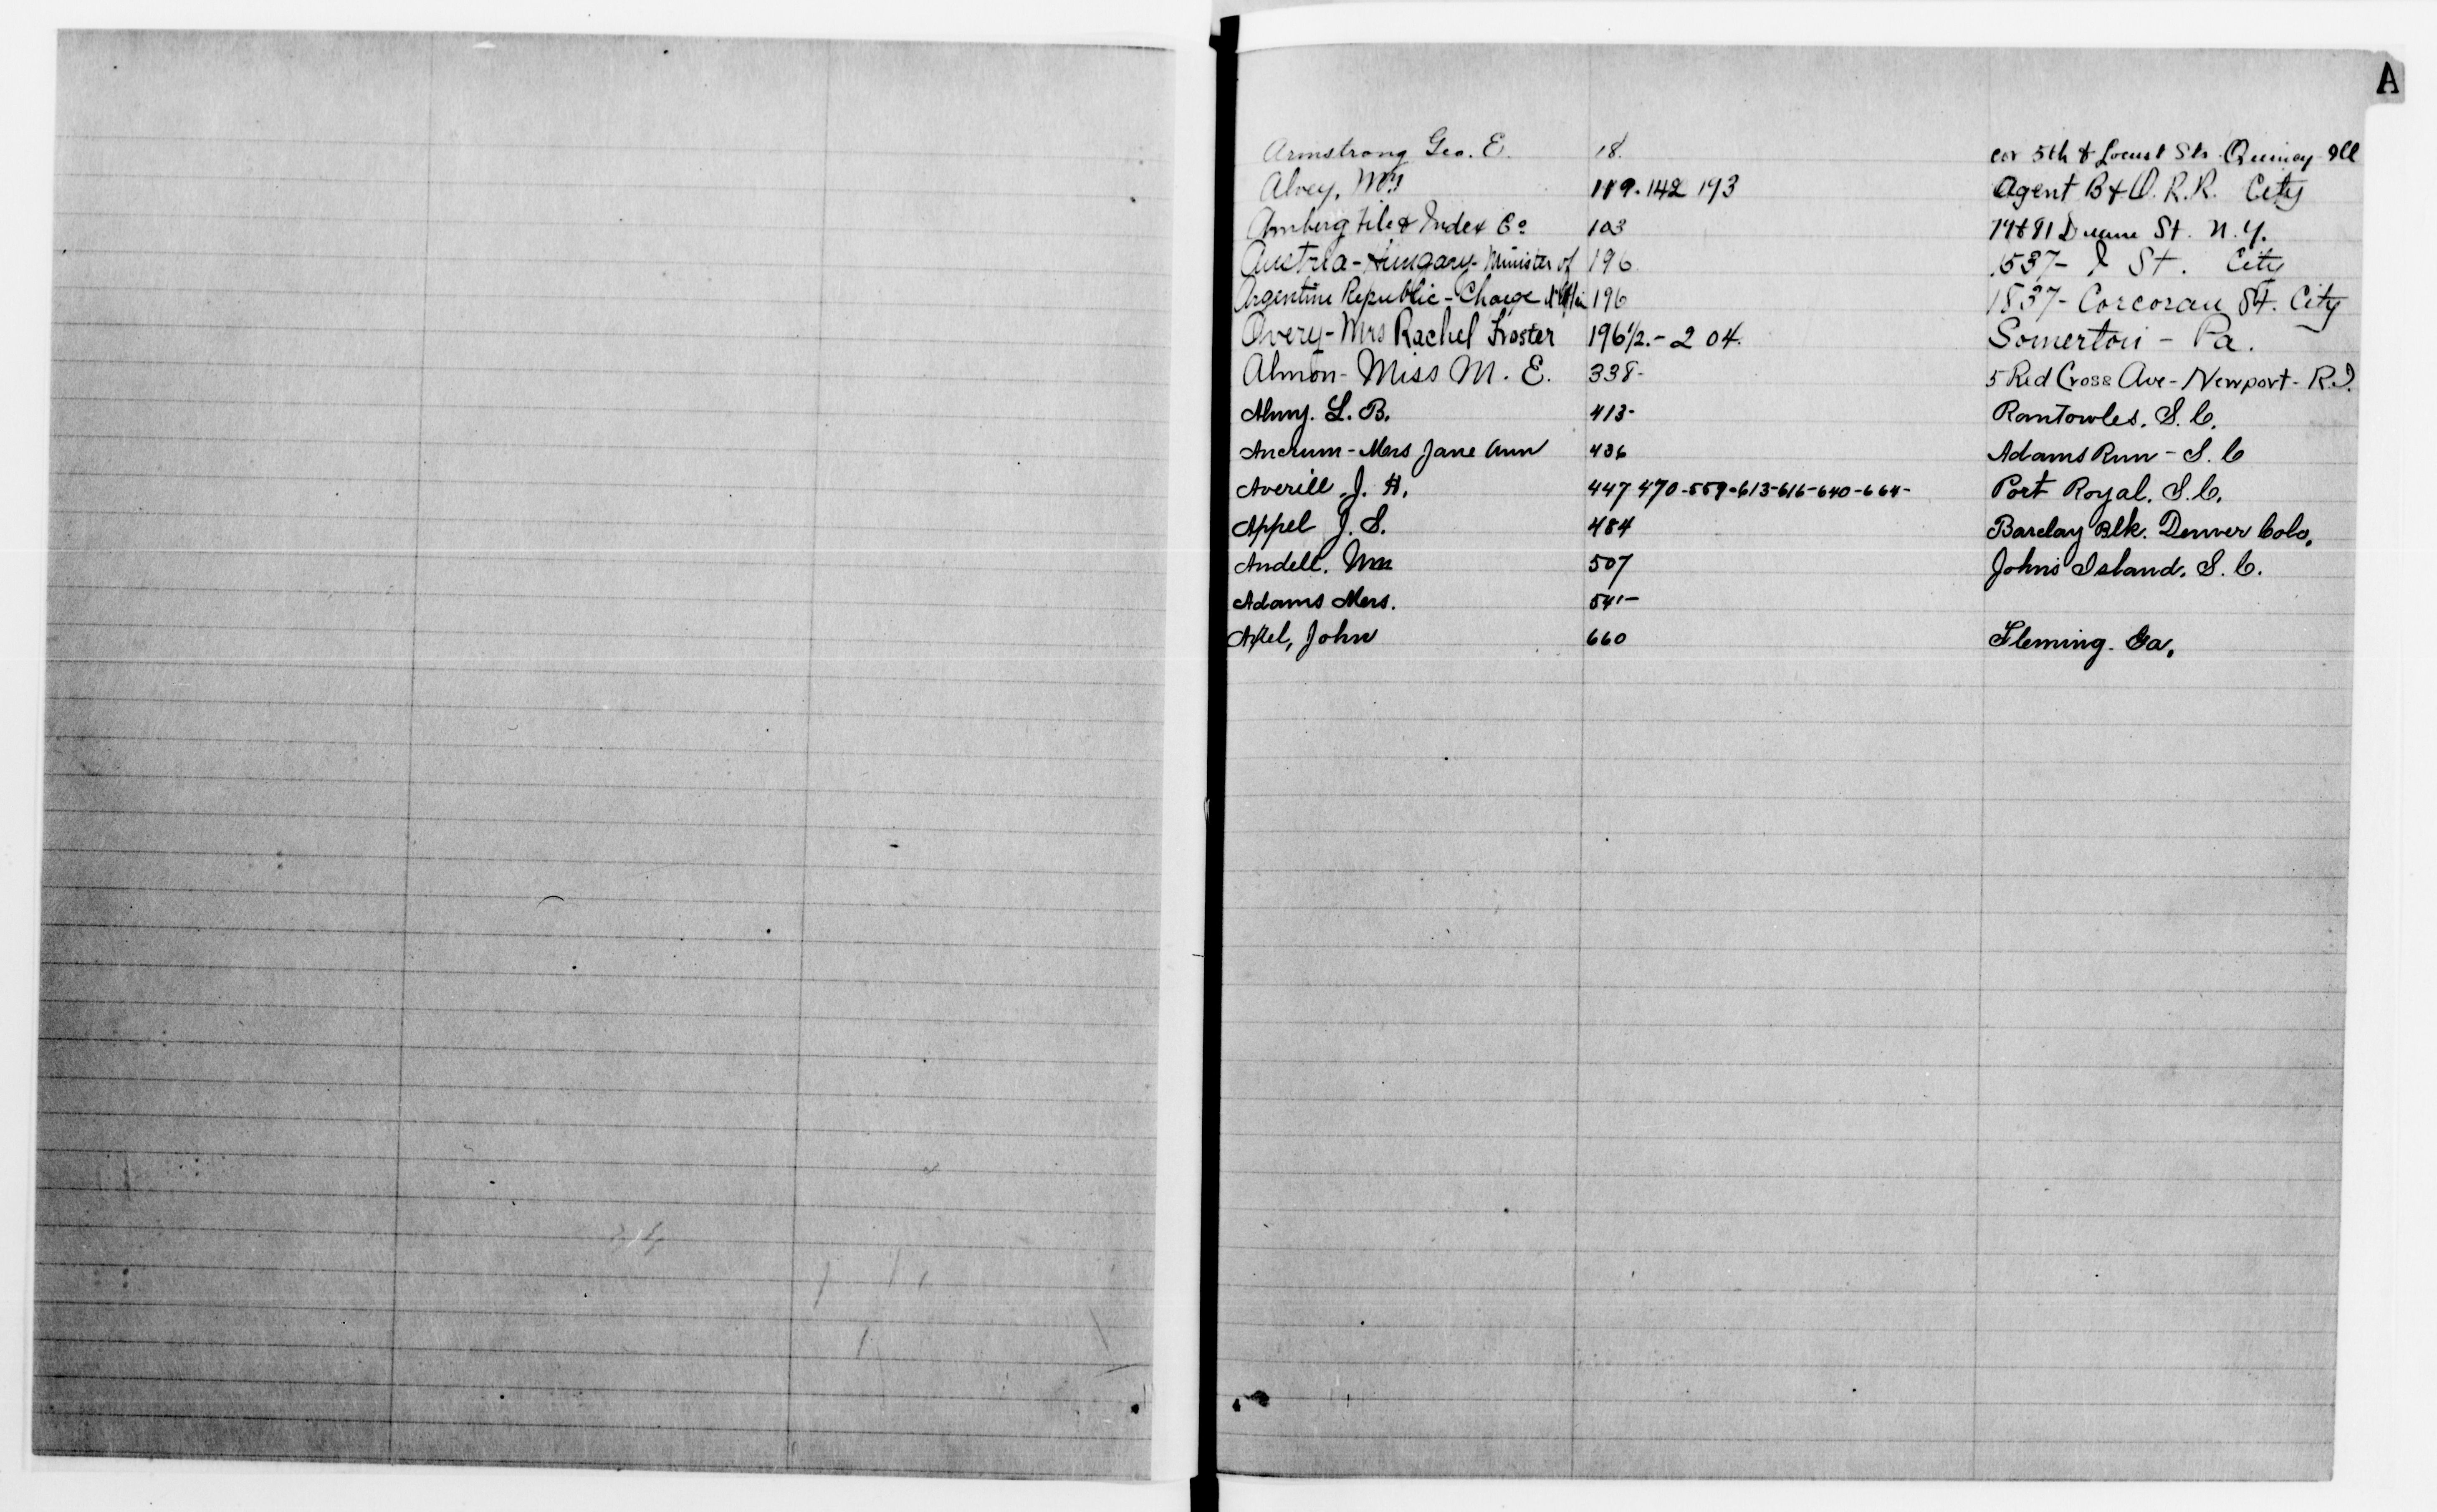 A
Armstrong Geo. E. 18. cor 5th & Locust Sts. Quincy Ill
Alvey, Mr 119. 142 193 Agent B & O. R.R. City
Amberg File & Index Co 103 79 & 81 Duane St. N.Y.
Austria-Hungary- Minister of 196 1537- I St. City
Argentine Republic- Charge 196 1837- Corcoran St. City
Avery- Mrs Rachel Froster 196 1/2.- 204. Somerton - Pa.
Almon- Miss M. E. 338- 5 Red Cross Ave- Newport- R.I.
Almy. L. B. 413- Rantowles. S. C.
Ancrum- Mrs Jane Ann 436 Adams Run - S. C
Averill. J. H. 447 470-559-613-616-640-664- Port Royal. S. C.
Appel J. S. 484 Barclay Blk. Denver Colo.
Andell. Wm 507 Johns Island. S. C.
Adams Mrs. 541-
Axel, John 660 Fleming. Ga.